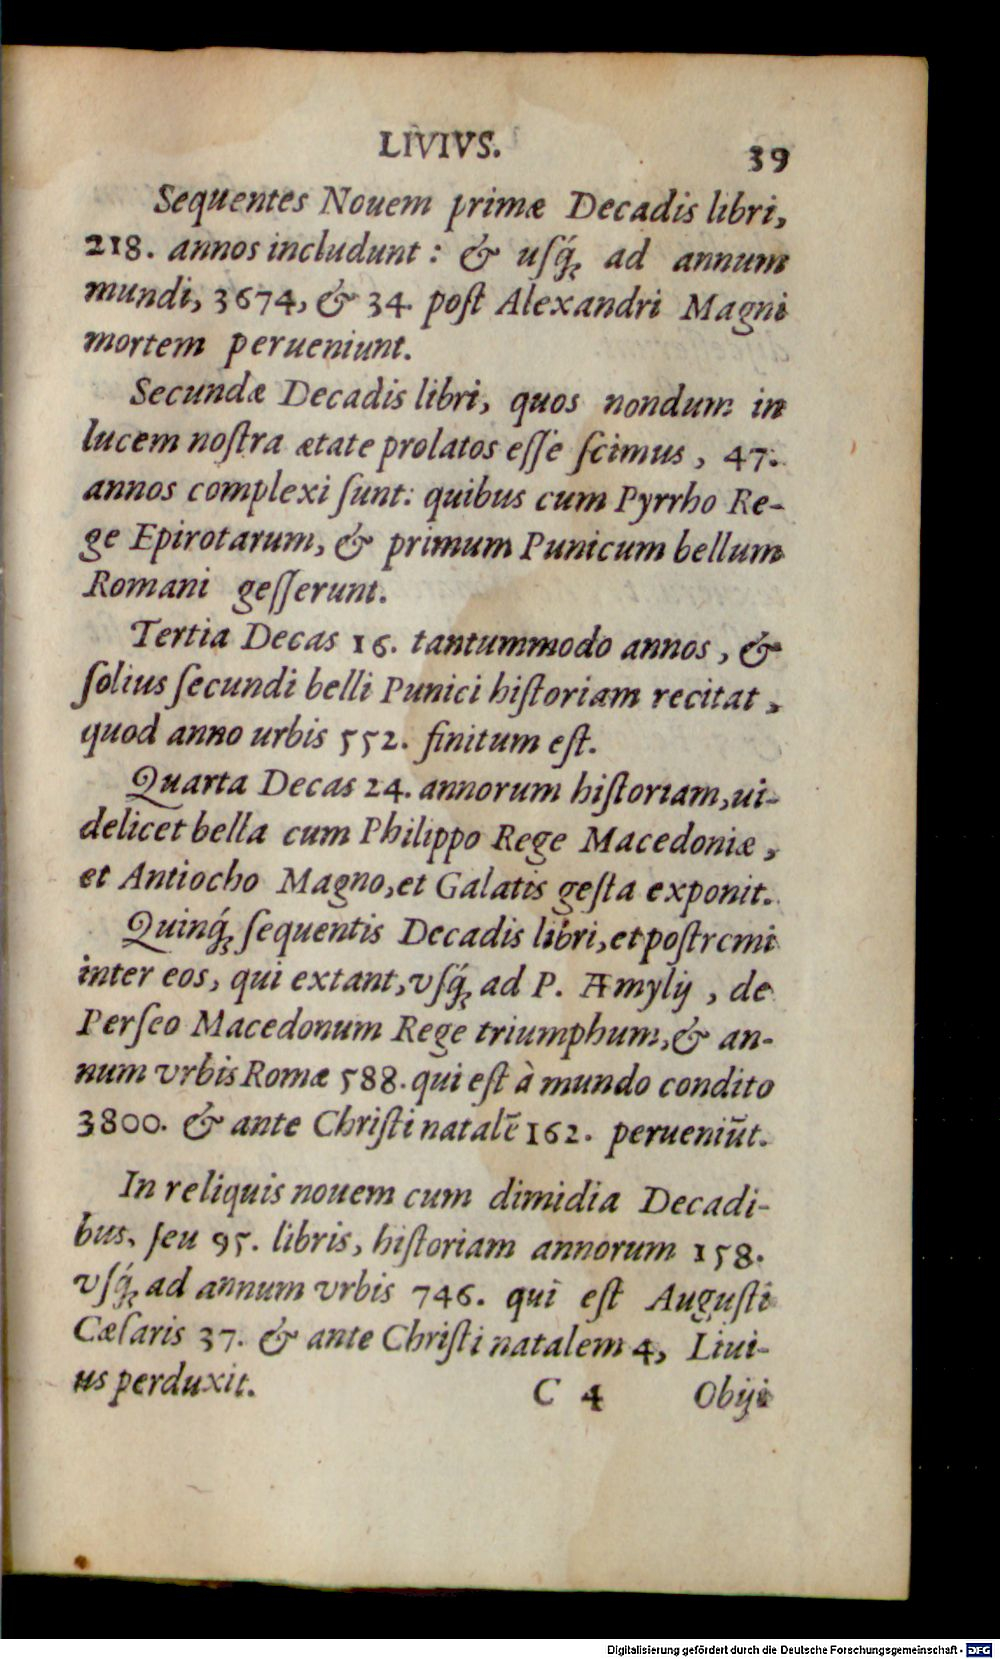 LIVIVS. 39
Sequentes Nouem primæ Decadis libri,
218. annos includunt: & uſq́; ad annum
mundi, 3674, & 34 poſt Alexandri Magni
mortem perueniunt.
Secundæ Decadis libri, quos nondum in
lucem noſtra ætate prolatos eſſe ſcimus, 47.
annos complexi ſunt: quibus cum Pyrrho Re-
ge Epirotarum, & primum Punicum bellum
Romani geſſerunt.
Tertia Decas 16. tantummodo annos, &
ſolius ſecundi belli Punici hiſtoriam recitat,
quod anno urbis 552. finitum eſt.
Quarta Decas 24. annorum hiſtoriam, ui-
delicet bella cum Philippo Rege Macedoniæ,
et Antiocho Magno, et Galatis geſta exponit.
Quinq́; ſequentis Decadis libri, et poſtremi
inter eos, qui extant, vſq́; ad P. Æmylij, de
Perſeo Macedonum Rege triumphum, & an-
num vrbis Romæ 588. qui eſt à mundo condito
3800. & ante Chriſti natalē 162. perueniūt.
In reliquis nouem cum dimidia Decadi-
bus, ſeu 95. libris, hiſtoriam annorum 158.
vſq́; ad annum vrbis 746. qui eſt Auguſti
Cæſaris 37. & ante Chriſti natalem 4, Liui-
us perduxit. C 4 Obiji
Digitalisierung gefördert durch die Deutsche Forschungsgemeinschaft - DFG